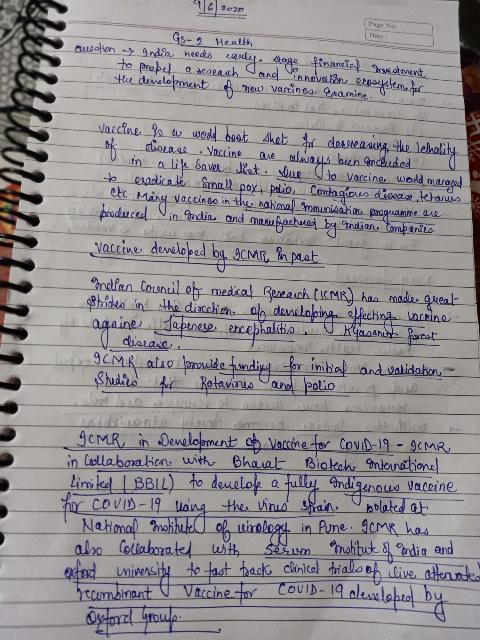 9/6/2020
Page No.
Date:
GS-2 Health
Question → India needs early stage financial investment
to propel a research and innovation ecosystem for
the development of new vaccines. Examine.
Vaccine is a world best shot for decreasing the lethality
of disease. Vaccine are always been included
in a life saver list. Due to vaccine world managed
to eradicate small pox, polio, Contagious disease, tetanus
etc. Many vaccines in the national immunisation programme are
produced in India and manufactured by Indian Companies.
Vaccine developed by ICMR in past
Indian Council of medical Research (ICMR) has made great
strides in the direction of developing effecting vaccine
againe Japenese encephalitis. Kyasanur forest
disease.
ICMR also provide funding for initial and validation
studies for Rotavirus and polio
ICMR in Development of Vaccine for COVID-19 - ICMR
in Collaboration with Bharat Biotech International
Limited (BBIL) to develop a fully Indigenous vaccine
for COVID-19 using the virus strain isolated at
National Institute of virology in Pune. ICMR has
also Collaborated with Serum Institute of India and
oxford university to fast track clinical trials of live attenuated
recombinant Vaccine for COVID-19 developed by
Oxford Group.